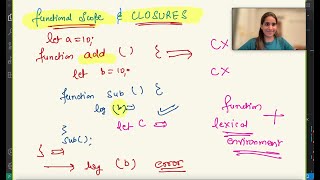 functional Scope & CLOSURES
let a = 10;
function add () {
let b = 10;
function sub () {
log (b)
let C
}
sub();
}
log (b) error
CX
CX
function
lexical
environment